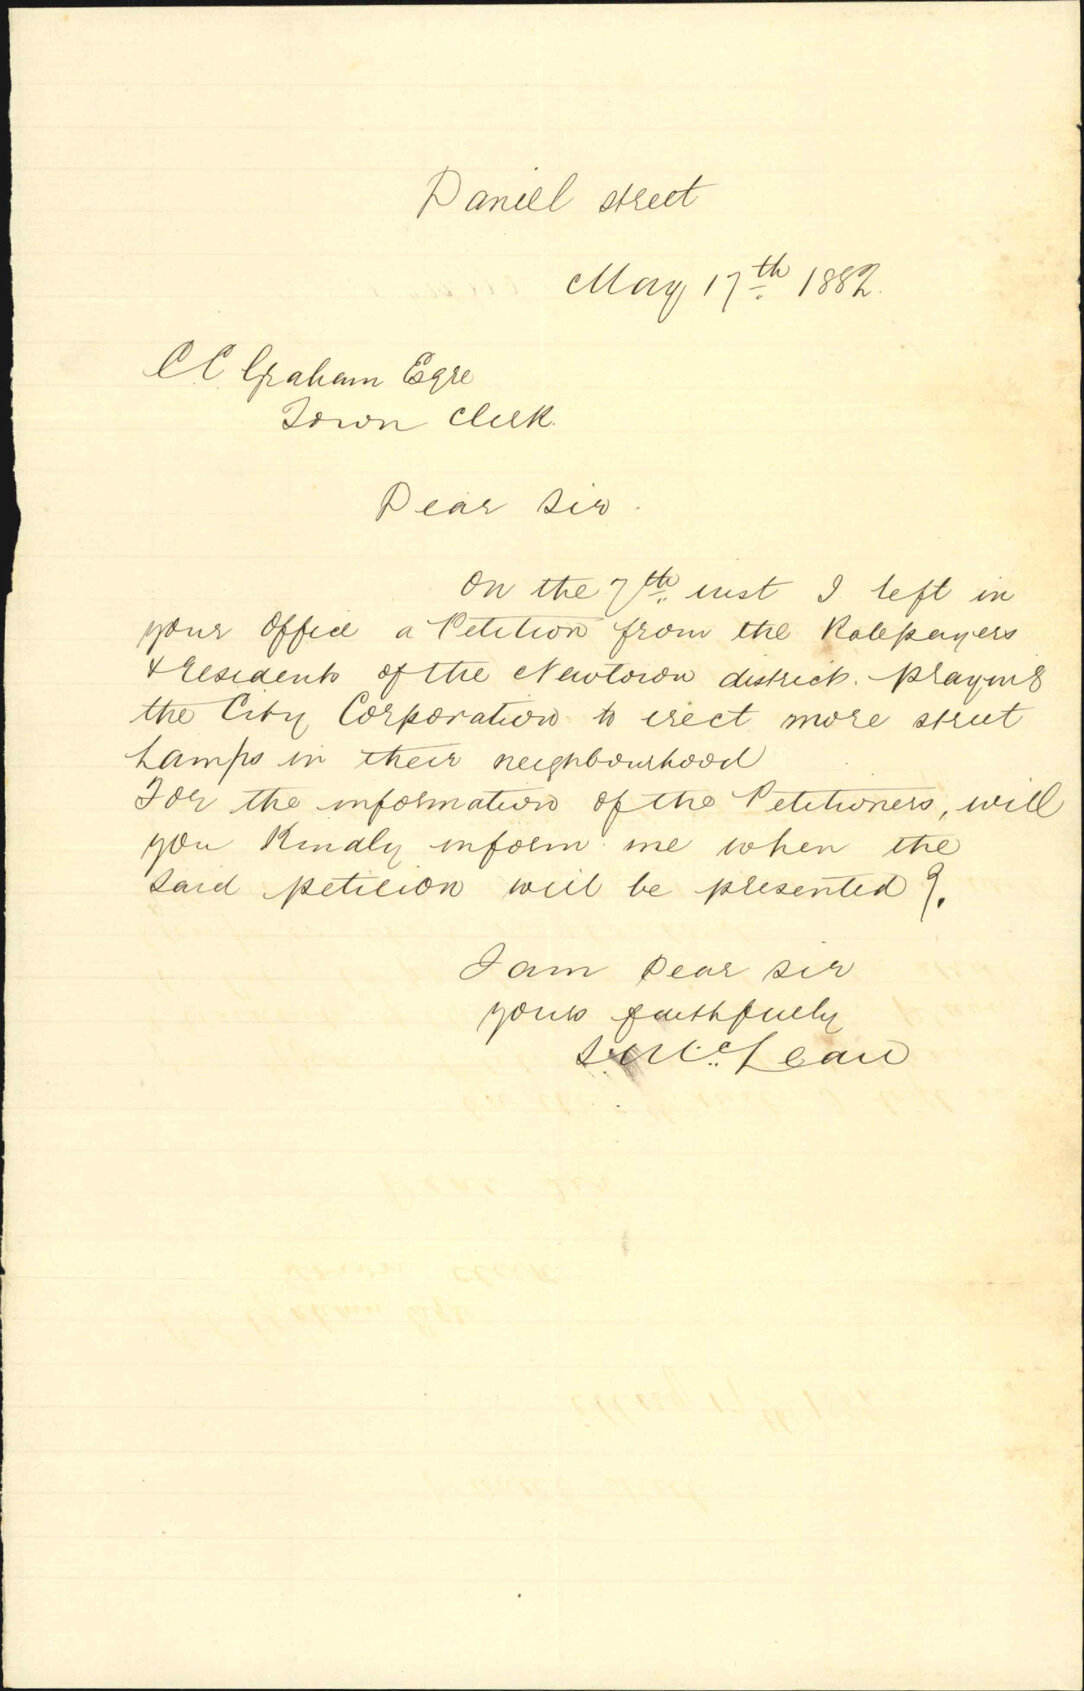 Daniell street
May 17th 1882.
C C Graham Esqre
Town Clerk.
Dear Sir.
On the 7th inst I left in
your Office a Petition from the Ratepayers
& residents of the Newtown district. praying
the City Corporation to erect more street
Lamps in their neighbourhood
For the information of the Petitioners, will
you Kindly inform me when the
said petition will be presented?
I am Dear Sir
yours faithfully
S. McLean